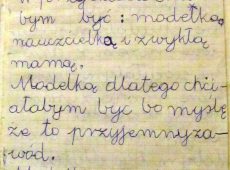 bym być: modelką
nauczcielką i zwykłą
mamą.
Modelką dlatego chci-
ałabym być bo myślę
że to przyjemny za-
wód.